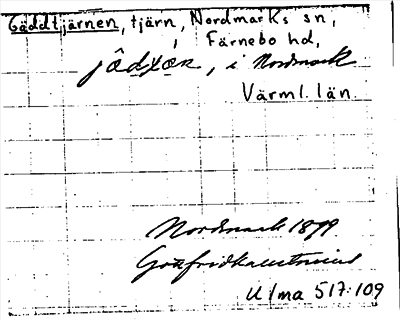 Gäddtjärnen, tjärn, Nordmarks sn,
Färnebo hd,
, i Nordmark
Värml. län.
Nordmark 1899.
Gottfrid Kallstenius
Ulma 517:109